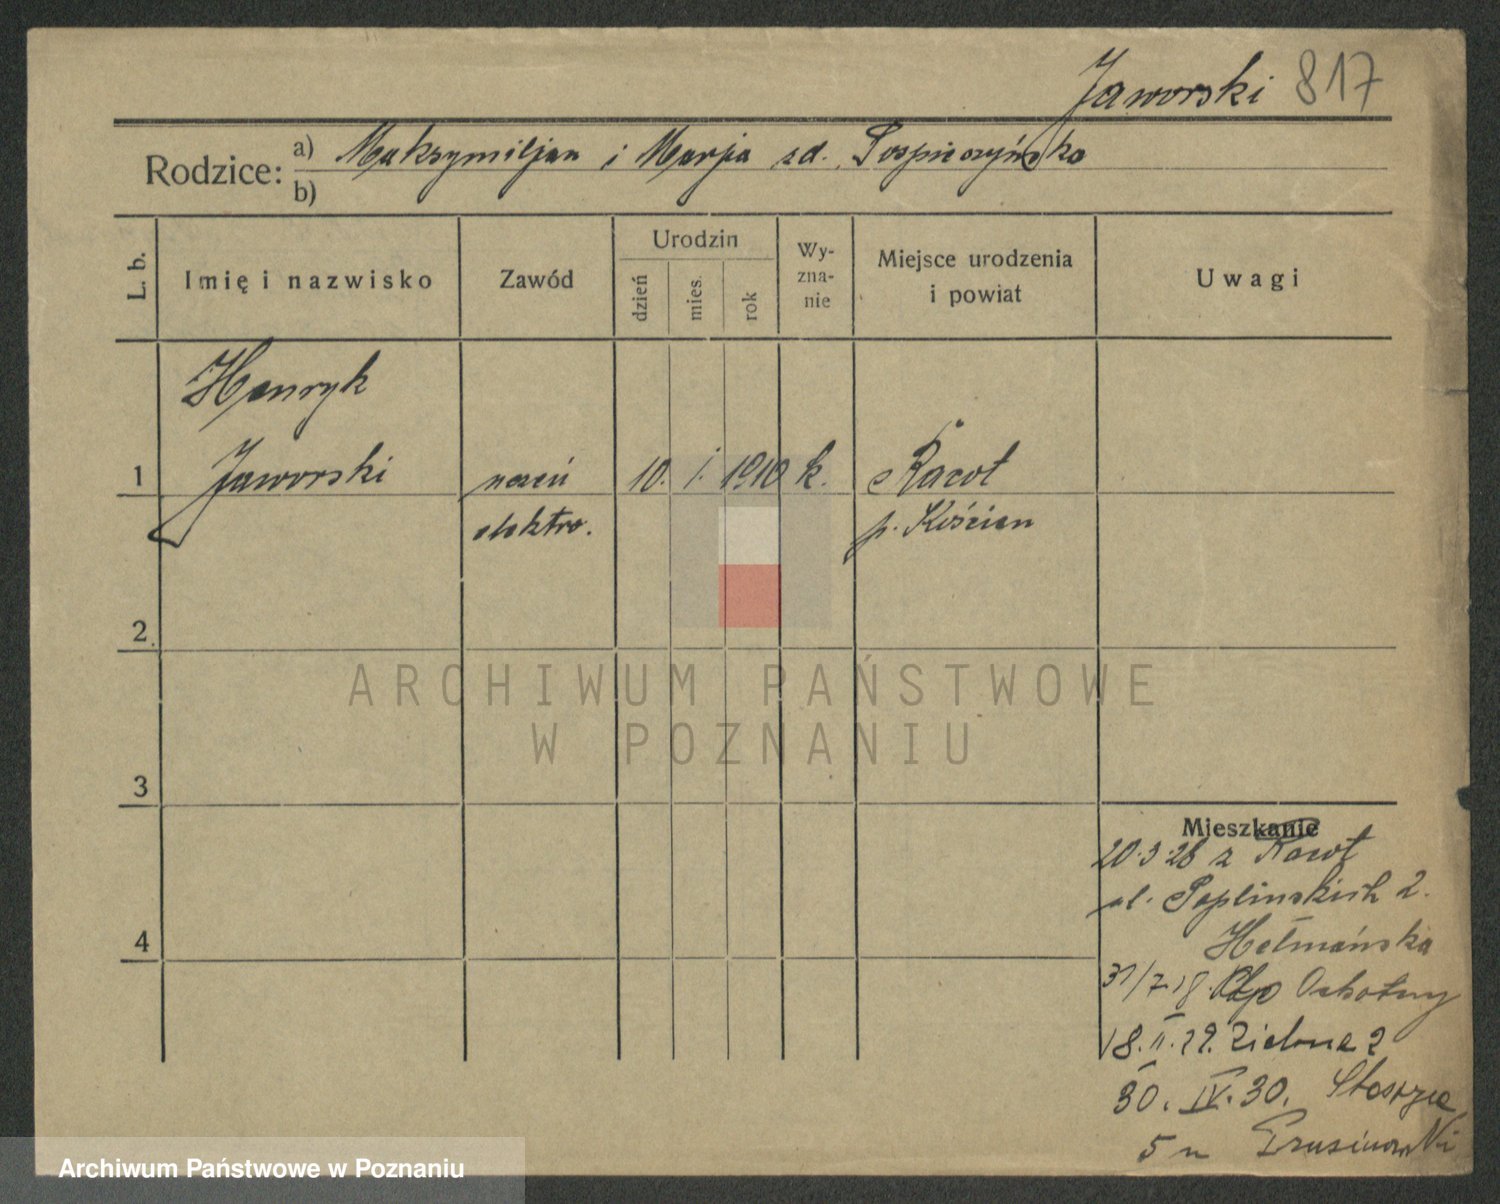 Jaworski 817
Rodzice: a) Maksymiljan i Marja zd.
b)
L. b.
Imię i nazwisko
Zawód
Urodzin
dzień
mies.
rok
Wy-
zna-
nie
Miejsce urodzenia
i powiat
Uwagi
Henryk
1 Jaworski uczeń 10. 1. 1910 k. Racot
elektro. p. Kościan
2
3
4
Mieszkanie
20.3.28 z Racot
ul. Poplinskich 2.
Hetmańska
31/7.
18.II.29. Zielona 2
30. IV. 30.
5
ARCHIWUM PAŃSTWOWE
W POZNANIU
Archiwum Państwowe w Poznaniu